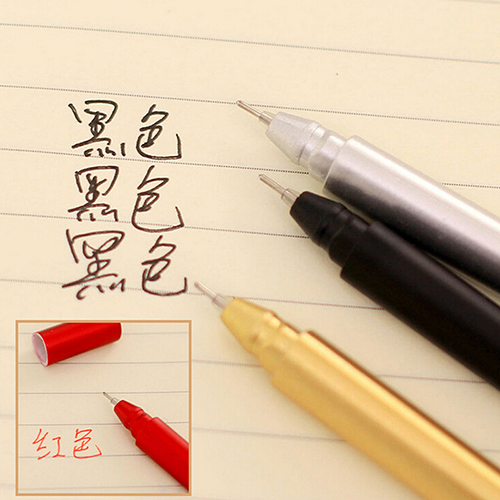 黑色
黑色
黑色
红色